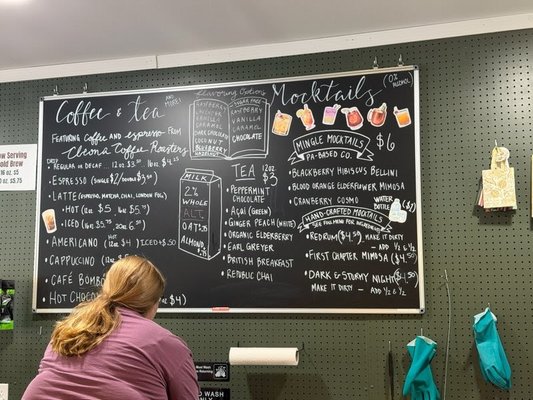 Now Serving
Cold Brew
16 oz. $5
$5.75
Coffee & tea
and more!
Featuring coffee and espresso from
Coffee Roasters
Regular or Decaf
12oz $3
16oz $4.
Espresso (single $2/double $3.50)
Latte (espresso, matcha, chai, London fog)
• Hot (12oz $5, 16oz $5.75)
• Iced (16oz $5.75)
Americano (12oz $4) Iced $4.50
Cappuccino (12oz
Café Bomb
Hot Choco
$4)
Flavouring Options
Raspberry
Vanilla
Caramel
Dark Chocolate
Coconut
Blueberry
Hazelnut
Sugar Free
Raspberry
Vanilla
Caramel
Chocolate
Milk
2%
Whole
Alt.
Oat $.75
Almond
Tea
12oz
$3
Peppermint
Chocolate
Açai (Green)
Ginger Peach (White)
Organic Elderberry
Earl Greyer
British Breakfast
Republic Chai
Mocktails
(0% alcohol)
Mingle Mocktails
PA-based co.
$6
• Blackberry Hibiscus Bellini
• Blood Orange Elderflower Mimosa
• Cranberry Cosmo
Water
Bottle
Hand-Crafted Mocktails
See full menu for
• Redrum ($4.50) Make it dirty
- Add 1/2 & 1/2
• First Chapter Mimosa ($4.50)
• Dark & Stormy Night ($4.50)
Make it dirty - Add 1/2 & 1/2